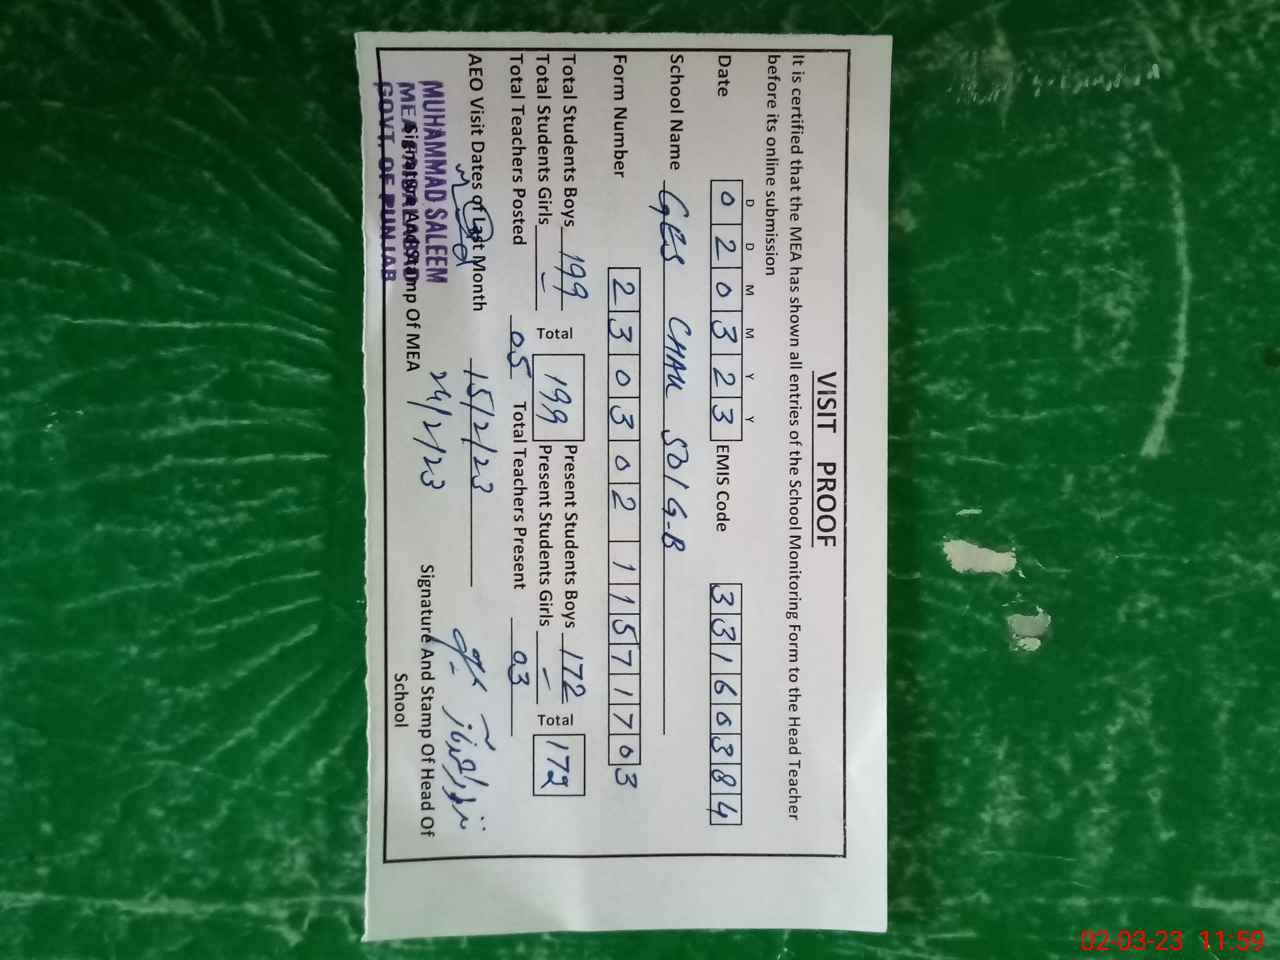 VISIT PROOF
It is certified that the MEA has shown all entries of the School Monitoring Form to the Head Teacher
before its online submission
D D M M Y Y
Date 0 2 0 3 2 3 EMIS Code 3 3 1 6 0 3 8 4
School Name GES CHAK 501 G-B
Form Number 2 3 0 3 0 2 1 1 5 7 1 7 0 3
Total Students Boys 199 Total 199 Present Students Boys 172 Total 172
Total Students Girls – Present Students Girls –
Total Teachers Posted 05 Total Teachers Present 03
AEO Visit Dates of Last Month 15/2/23
24/2/23
MUHAMMAD SALEEM
MEA FAISALABAD
GOVT. OF PUNJAB
Signature And Stamp Of MEA
Signature And Stamp Of Head Of
School
02-03-23 11:59